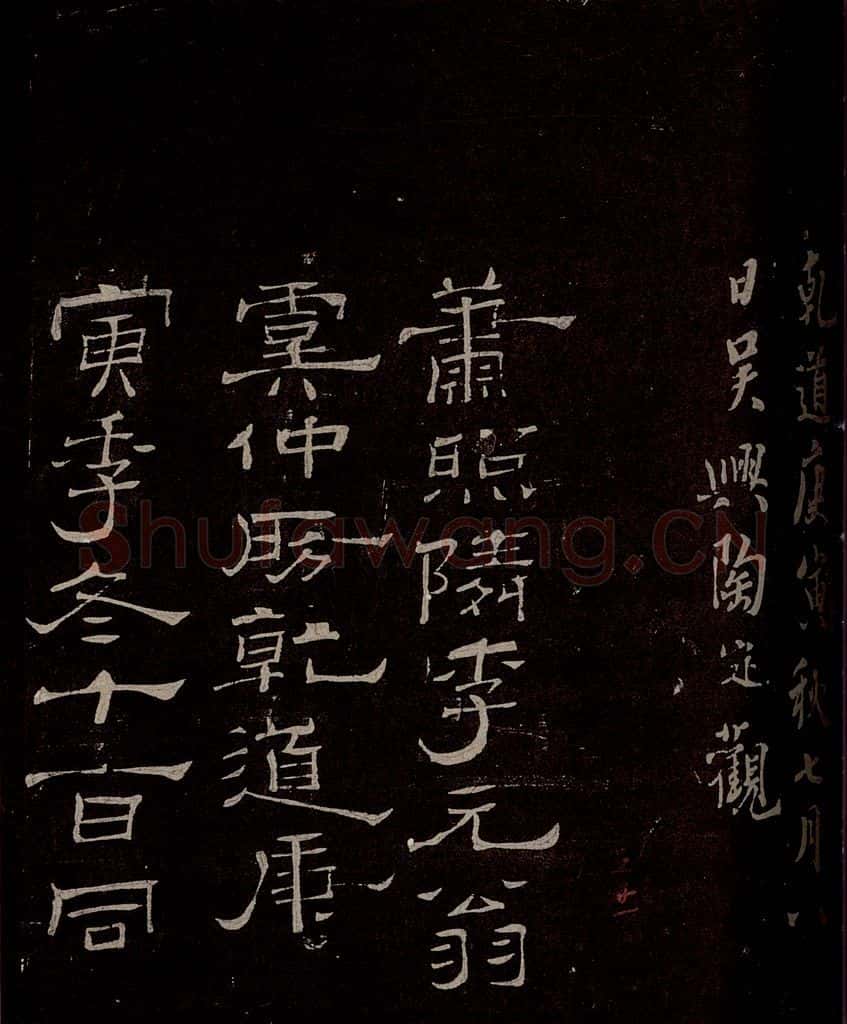 乾道庚寅秋七月八
日吳興陶定觀
蕭照隣李元翁
虞仲房乾道庚
寅季冬十一日同
Shufawang.CN